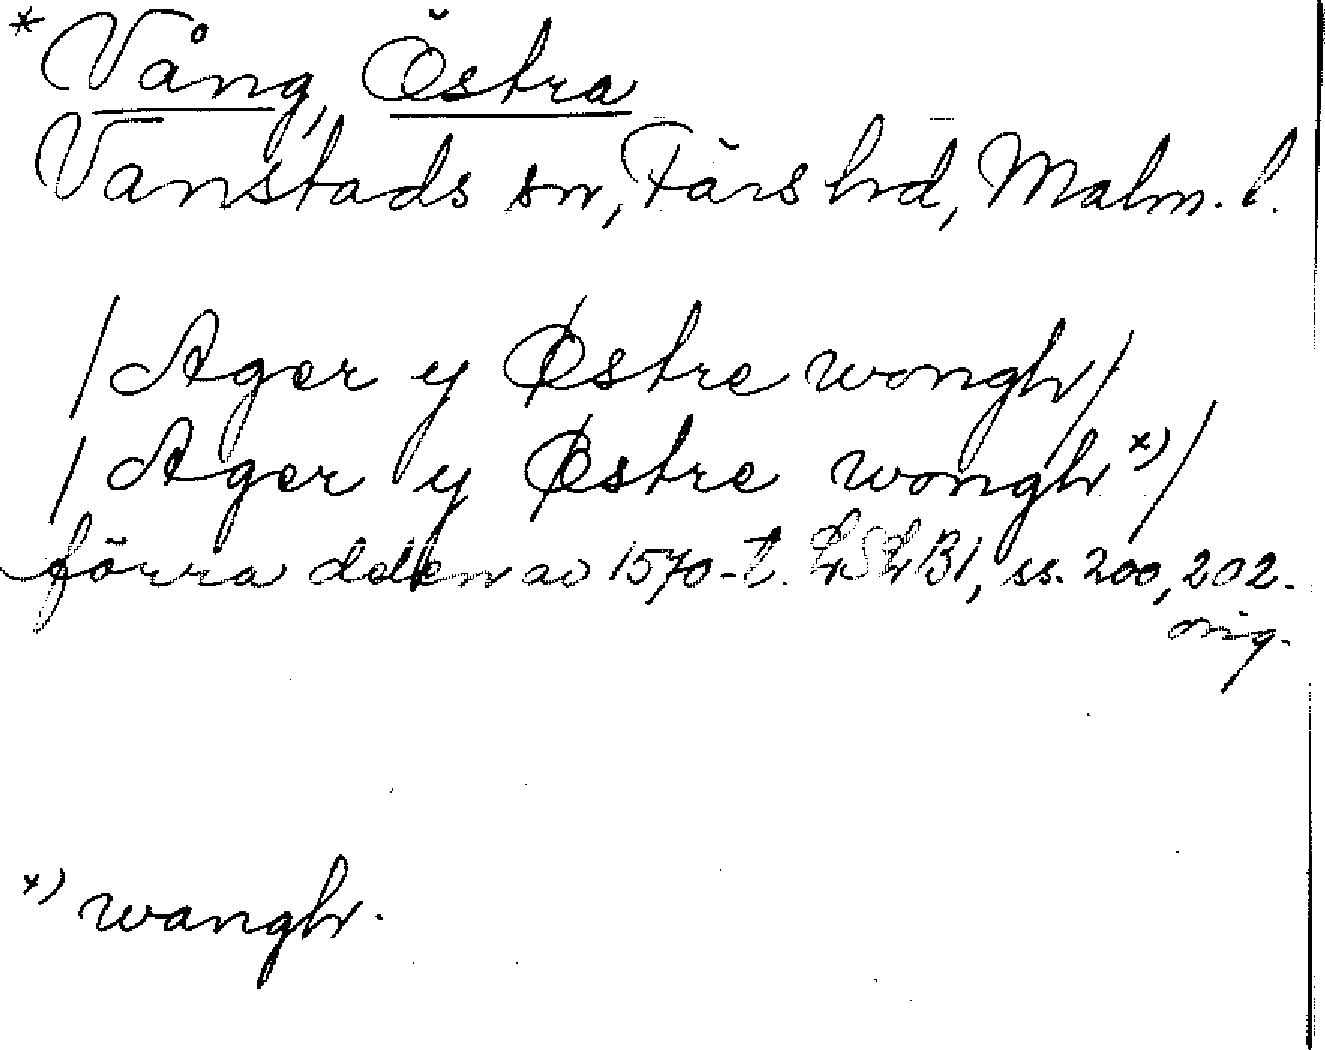 * Vång, Östra
Vanstads sn, Färs hd, Malm. l.
/ Ager y Østre wongh /
/ Ager y Østre wongh x) /
förra delen av 1570-t. LSLB1, ss. 200, 202.
orig.
x) wangh.